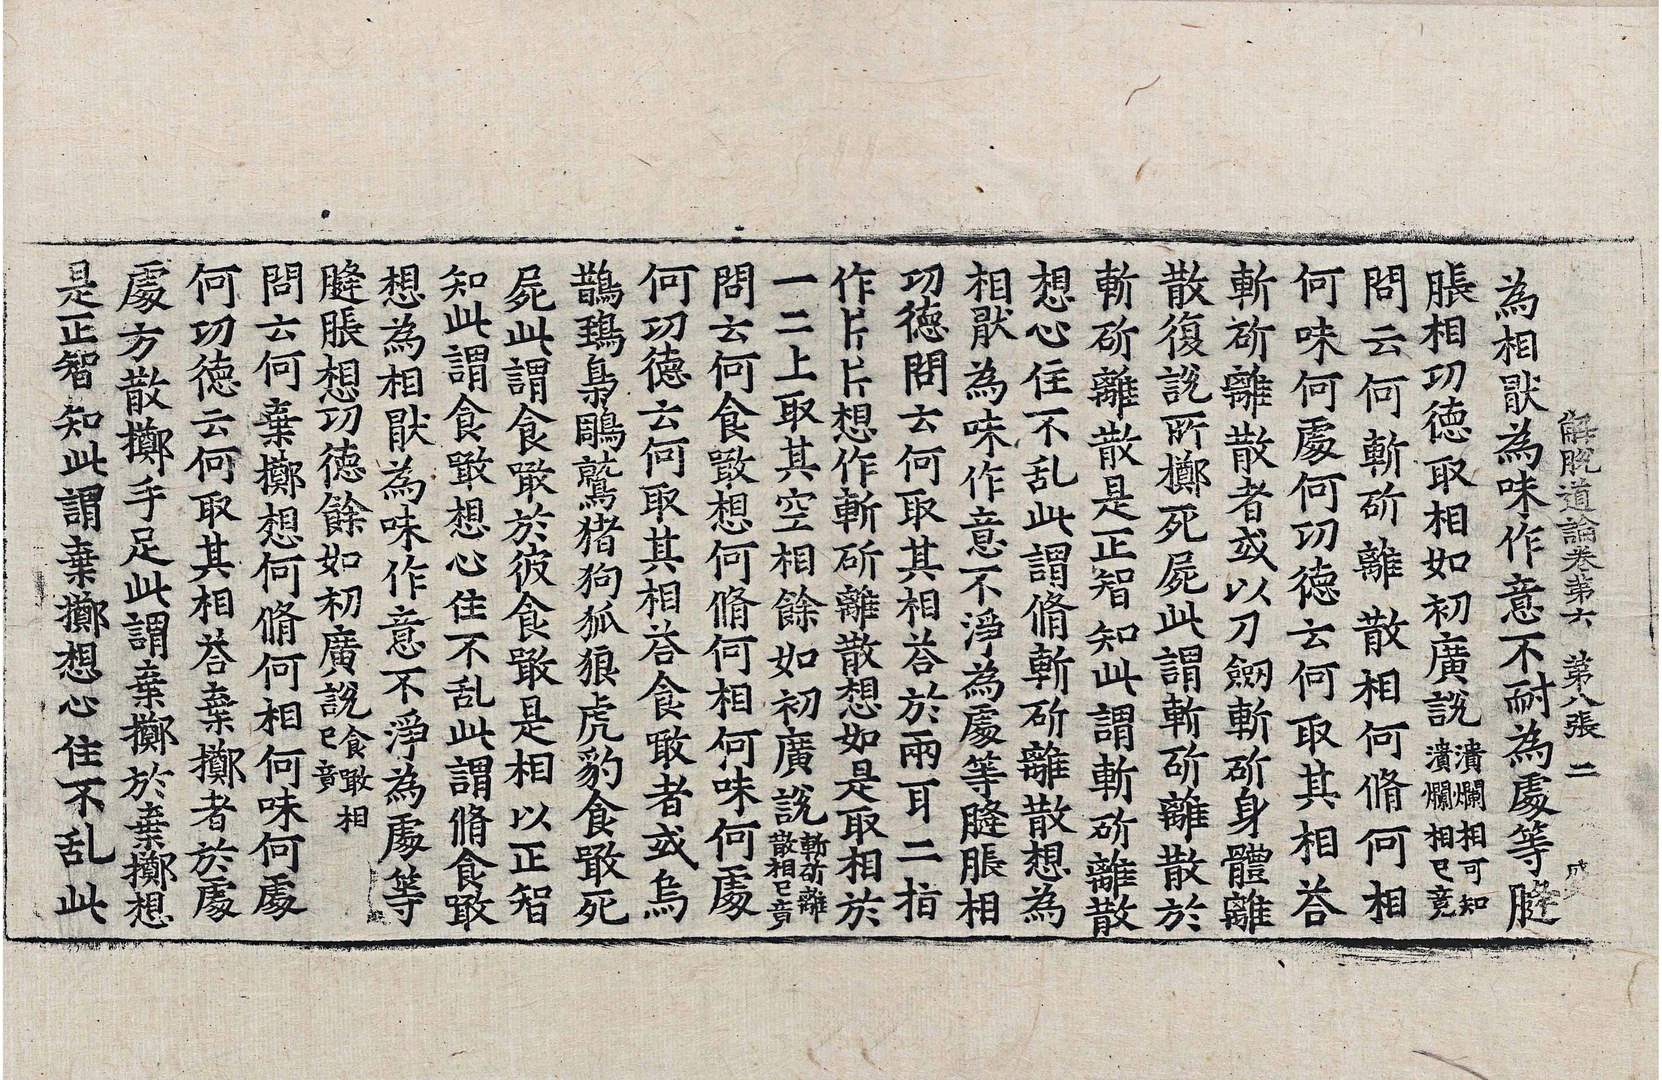 解脫道論卷第六　第八張　二　盛
為相厭為味作意不耐為處等膖
脹相功德取相如初廣說潰爛相可知潰爛相已竟
問云何斬斫離散相何脩何相
何味何處何功德云何取其相荅
斬斫離散者或以刀劒斬斫身體離
散復說所擲死屍此謂斬斫離散於
斬斫離散是正智知此謂斬斫離散
想心住不乱此謂脩斬斫離散想為
相猒為味作意不淨為處等膖脹相
功德問云何取其相荅於兩耳二指
作片片想作斬斫離散想如是取相於
一二上取其空相餘如初廣說斬斫離散相已竟
問云何食噉想何脩何相何味何處
何功德云何取其相荅食噉者或烏
鵲鵄梟鵰鷲猪狗狐狼虎豹食噉死
屍此謂食噉於彼食噉是相以正智
知此謂食噉想心住不乱此謂脩食噉
想為相猒為味作意不淨為處等
膖脹想功德餘如初廣說食噉相已竟
問云何棄擲想何脩何相何味何處
何功德云何取其相荅棄擲者於處
處方散擲手足此謂棄擲於棄擲想
是正智知此謂棄擲想心住不乱此